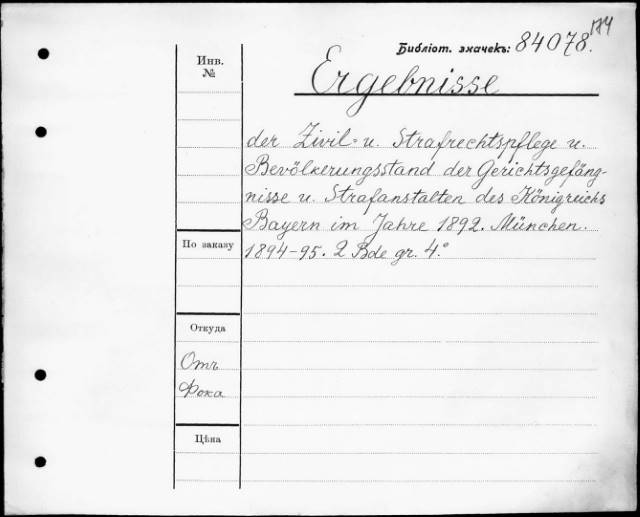 174
Библіот. значекъ: 84078.
Инв. №
Ergebnisse
der Zivil- u. Strafrechtspflege u.
Bevölkerungsstand der Gerichtsgefäng-
nisse u. Strafanstalten des Königreichs
Bayern im Jahre 1892. München.
По заказу
1894-95. 2 Bde gr. 4.°
Откуда
Отъ
Фока
Цѣна